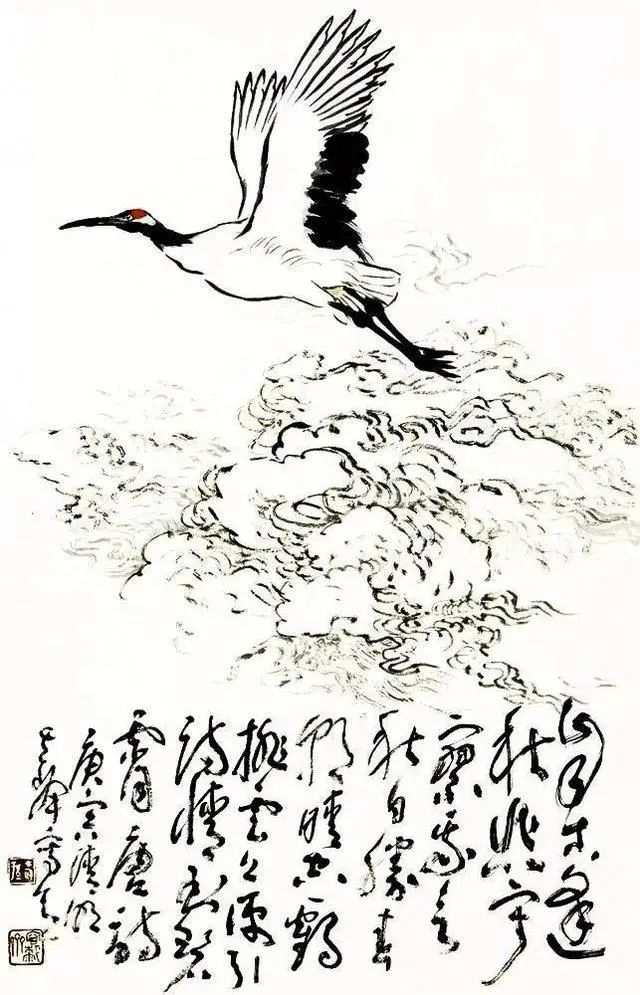 自古逢
秋悲寂
寥我言
秋日勝春
朝晴空一鶴
排云上便引
诗情到碧
霄唐诗
庚寅清明